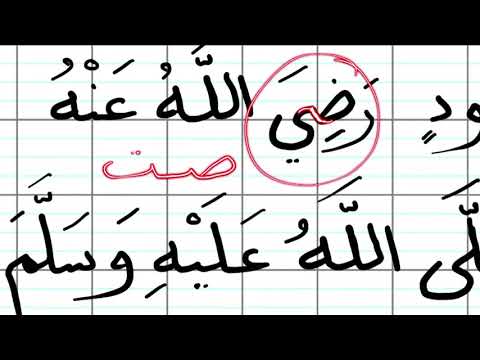 ودٍ رَضِيَ اللَّهُ عَنْهُ
صت
لَّى اللَّهُ عَلَيْهِ وَسَلَّمَ